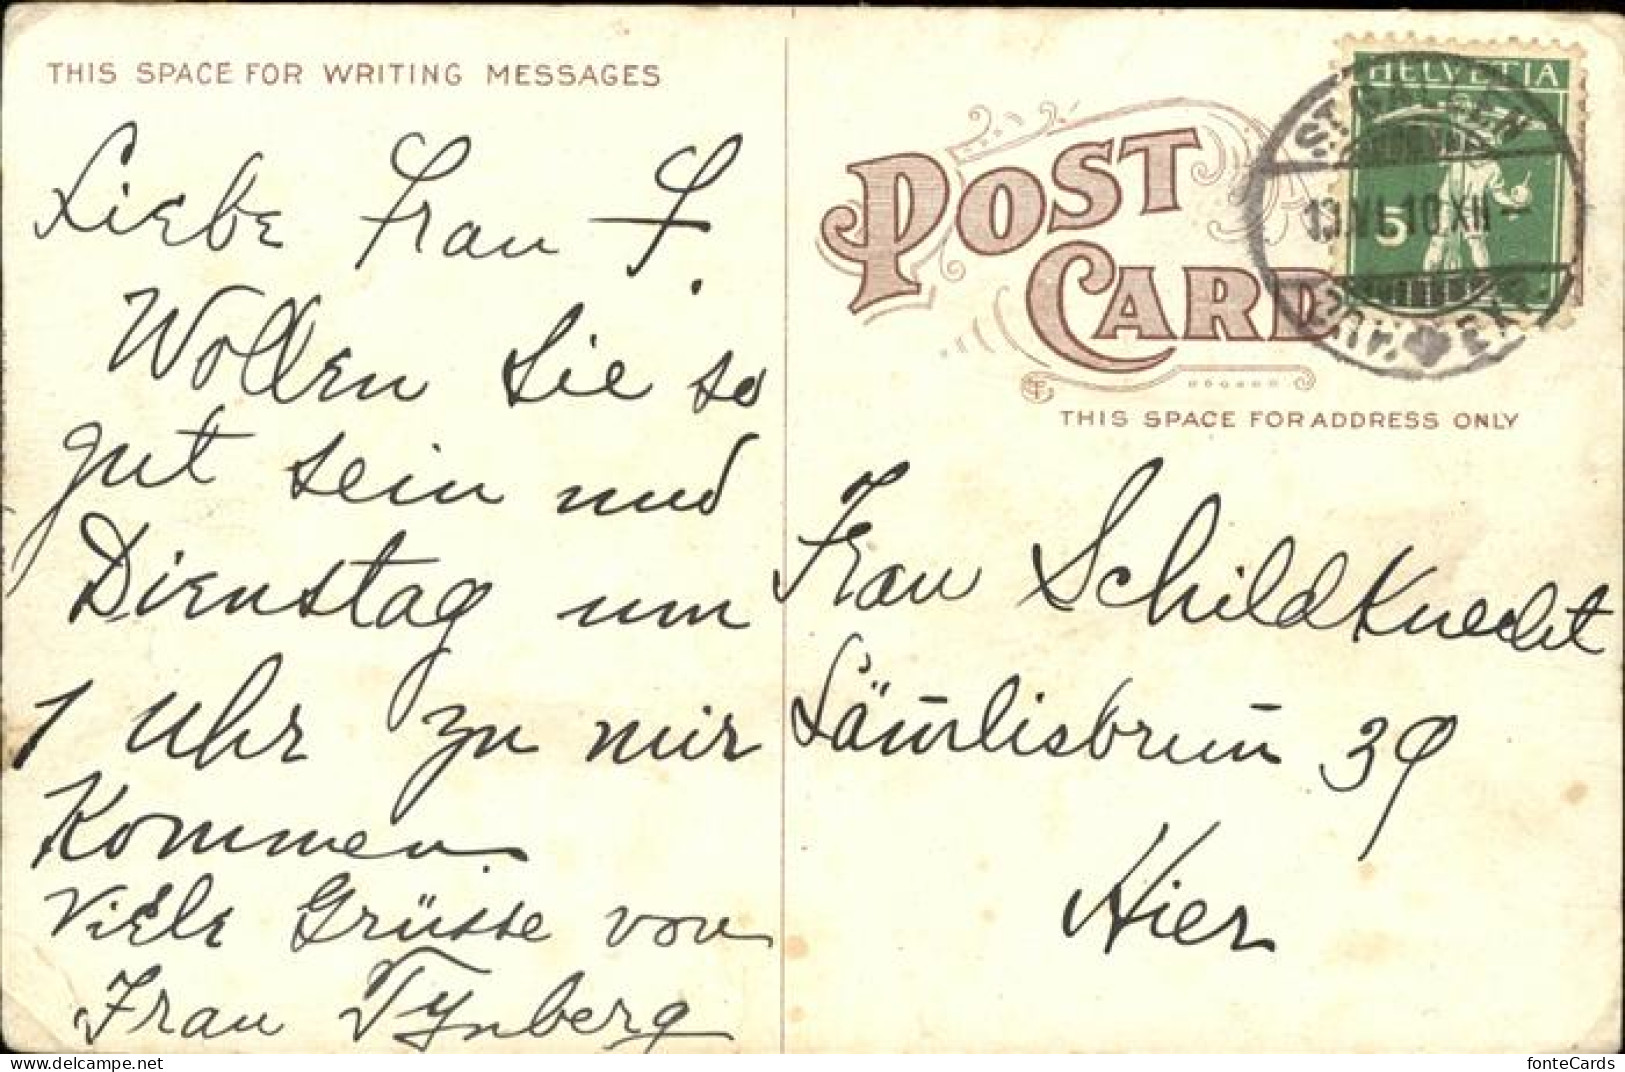 THIS SPACE FOR WRITING MESSAGES
Liebe Frau S.
Wollen Sie so
gut sein und
Dienstag um
1 Uhr zu mir
Kommen.
Viele Grüsse von
Frau Tynberg
POST
CARD
THIS SPACE FOR ADDRESS ONLY
HELVETIA
5
ST. GALLEN
13.VI.10.XII-
Frau Schildknecht
Lämlisbrun 39
Hier
delcampe.net
fonteCards